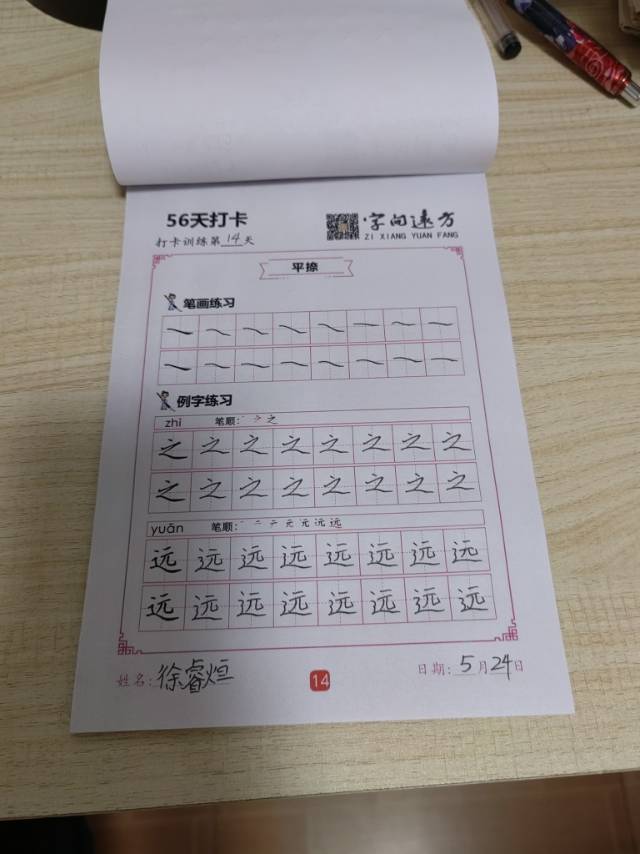 56天打卡
字向遠方
打卡训练第14天
ZI XIANG YUAN FANG
平捺
笔画练习
例字练习
zhī 笔顺:丶 ㇇ 之
之 之 之 之 之 之 之 之
之 之 之 之 之 之 之 之
yuǎn 笔顺:一 二 テ 元 元 沅 远
远 远 远 远 远 远 远 远
远 远 远 远 远 远 远 远
姓名:徐睿烜
14
日期:5月24日